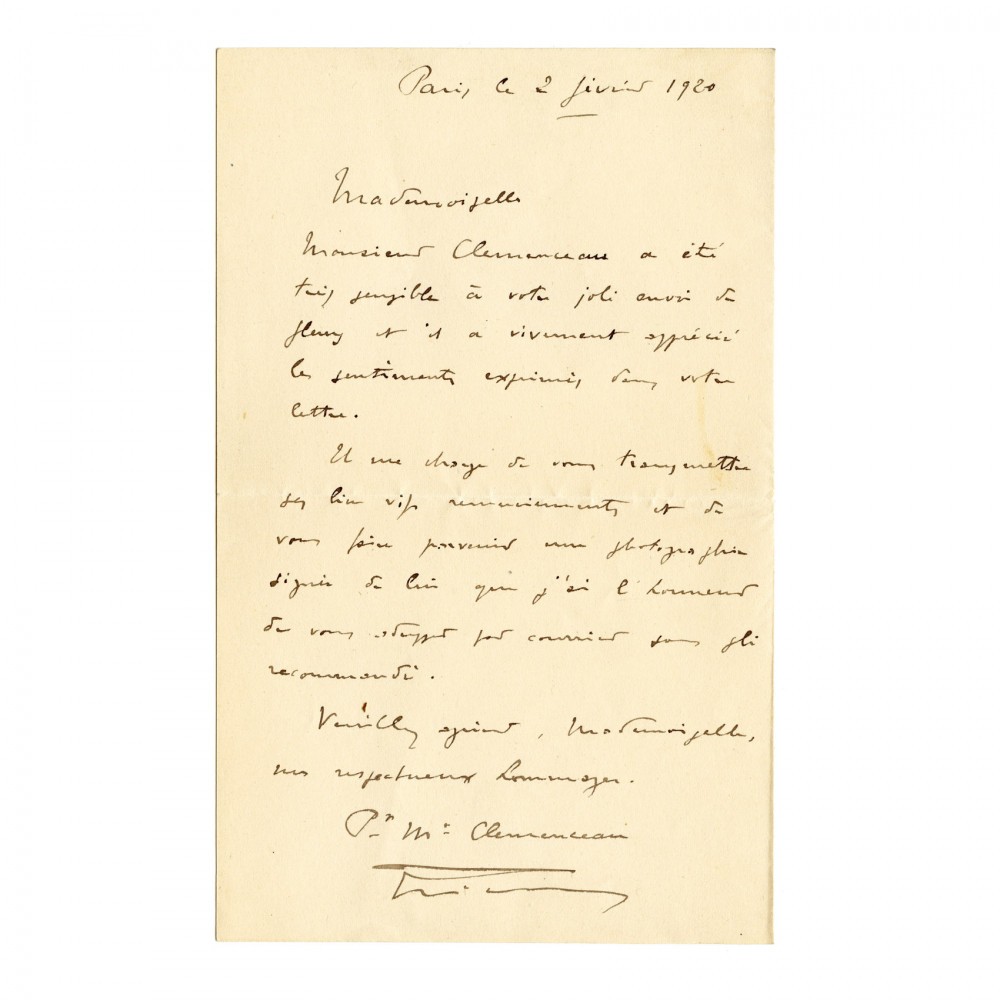 Paris le 2 février 1920
Mademoiselle
Monsieur Clemenceau a été
très sensible à votre joli envoi de
fleurs et il a vivement apprécié
les sentiments exprimés dans votre
lettre.
Il me charge de vous transmettre
ses bien vifs remerciements et de
vous faire parvenir une photographie
signée de lui que j'ai l'honneur
de vous adresser par courrier sous pli
recommandé.
Veuillez agréer, Mademoiselle,
mes respectueux hommages.
Pr Mr Clemenceau